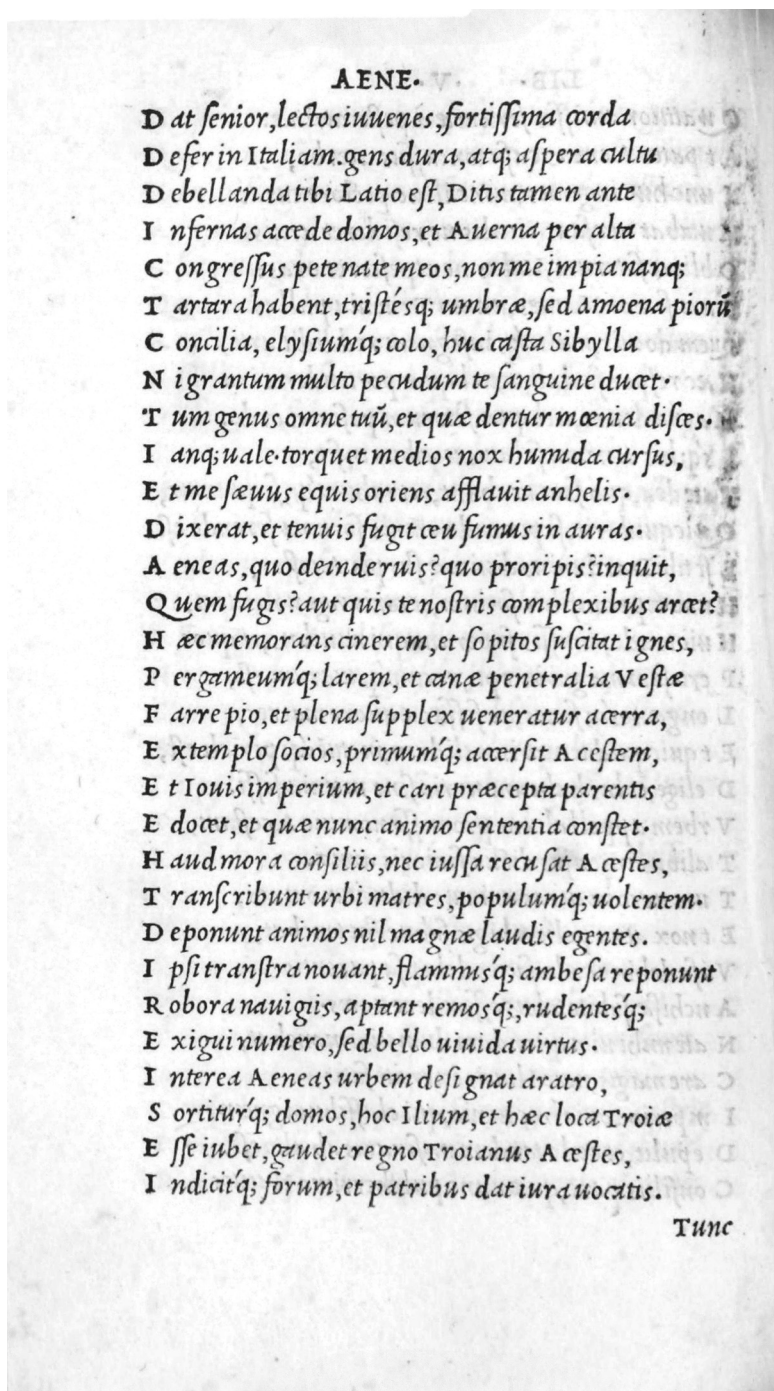 AENE.
D at senior, lectos iuuenes, fortissima corda
D efer in Italiam. gens dura, atq; aspera cultu
D ebellanda tibi Latio est, Ditis tamen ante
I nfernas accede domos, et Auerna per alta
C ongressus pete nate meos, non me impia nanq;
T artara habent, tristésq; umbræ, sed amoena piorũ
C oncilia, elysium'q; colo, huc casta Sibylla
N igrantum multo pecudum te sanguine ducet.
T um genus omne tuũ, et quæ dentur mœnia disces.
I anq; uale. torquet medios nox humida cursus,
E t me sæuus equis oriens afflauit anhelis.
D ixerat, et tenuis fugit ceu fumus in auras.
A eneas, quo deinde ruis? quo proripis? inquit,
Quem fugis? aut quis te nostris complexibus arcet?
H æc memorans cinerem, et sopitos suscitat ignes,
P ergameum'q; larem, et canæ penetralia Vestæ
F arre pio, et plena supplex ueneratur acerra,
E xtemplo socios, primum'q; accersit Acestem,
E t Iouis imperium, et cari præcepta parentis
E docet, et quæ nunc animo sententia constet.
H aud mora consiliis, nec iussa recusat Acestes,
T ranscribunt urbi matres, populum'q; uolentem.
D eponunt animos nil magnæ laudis egentes.
I psi transtra nouant, flammis'q; ambesa reponunt
R obora nauigiis, aptant remos'q;, rudentes'q;
E xigui numero, sed bello uiuida uirtus.
I nterea Aeneas urbem designat aratro,
S ortitur'q; domos, hoc Ilium, et hæc loca Troiæ
E sse iubet, gaudet regno Troianus Acestes,
I ndicit'q; forum, et patribus dat iura uocatis.
Tunc